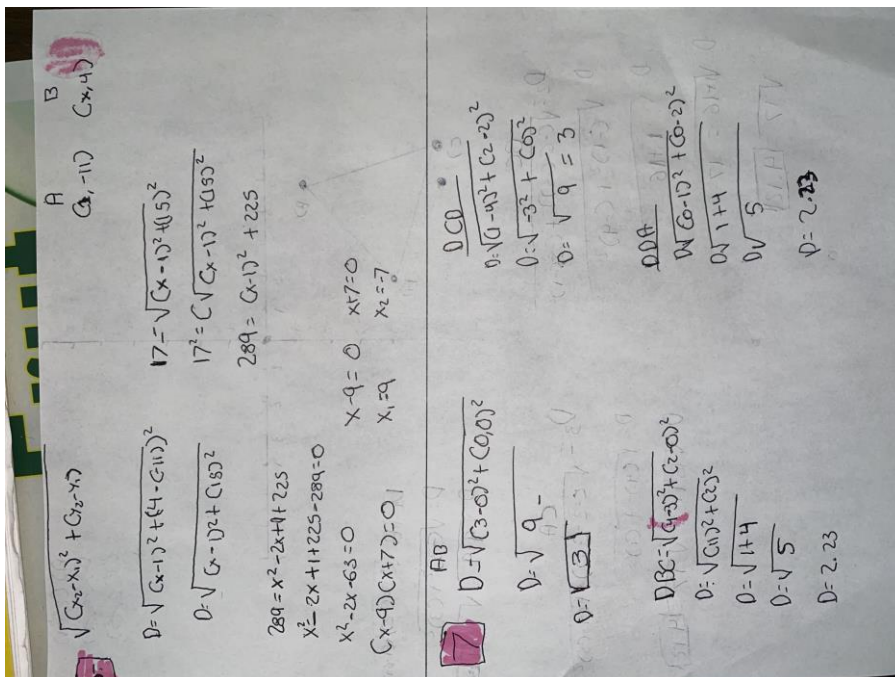 5.
√(x₂-x₁)² + (y₂-y₁)
A B
(1,-11) (x,4)
D=√(x-1)²+(4-(-11))²
D=√(x-1)²+(15)²
17=√(x-1)²+(15)²
17²=(√(x-1)²+(15)²
289=(x-1)²+225
289=x²-2x+1+225
x²-2x+1+225-289=0
x²-2x-63=0
(x-9)(x+7)=0
x-9=0 x+7=0
x₁=9 x₂=-7
7
AB
D=√(3-0)²+(0,0)²
D=√9
D=√3
DBC=√(4-3)²+(2-0)²
D=√(1)²+(2)²
D=√1+4
D=√5
D=2.23
DCD
D=√(1-4)²+(2-2)²
D=√-3²+(0)²
D=√9=3
DDA
D√(0-1)²+(0-2)²
D√1+4
D√5
D=2.23